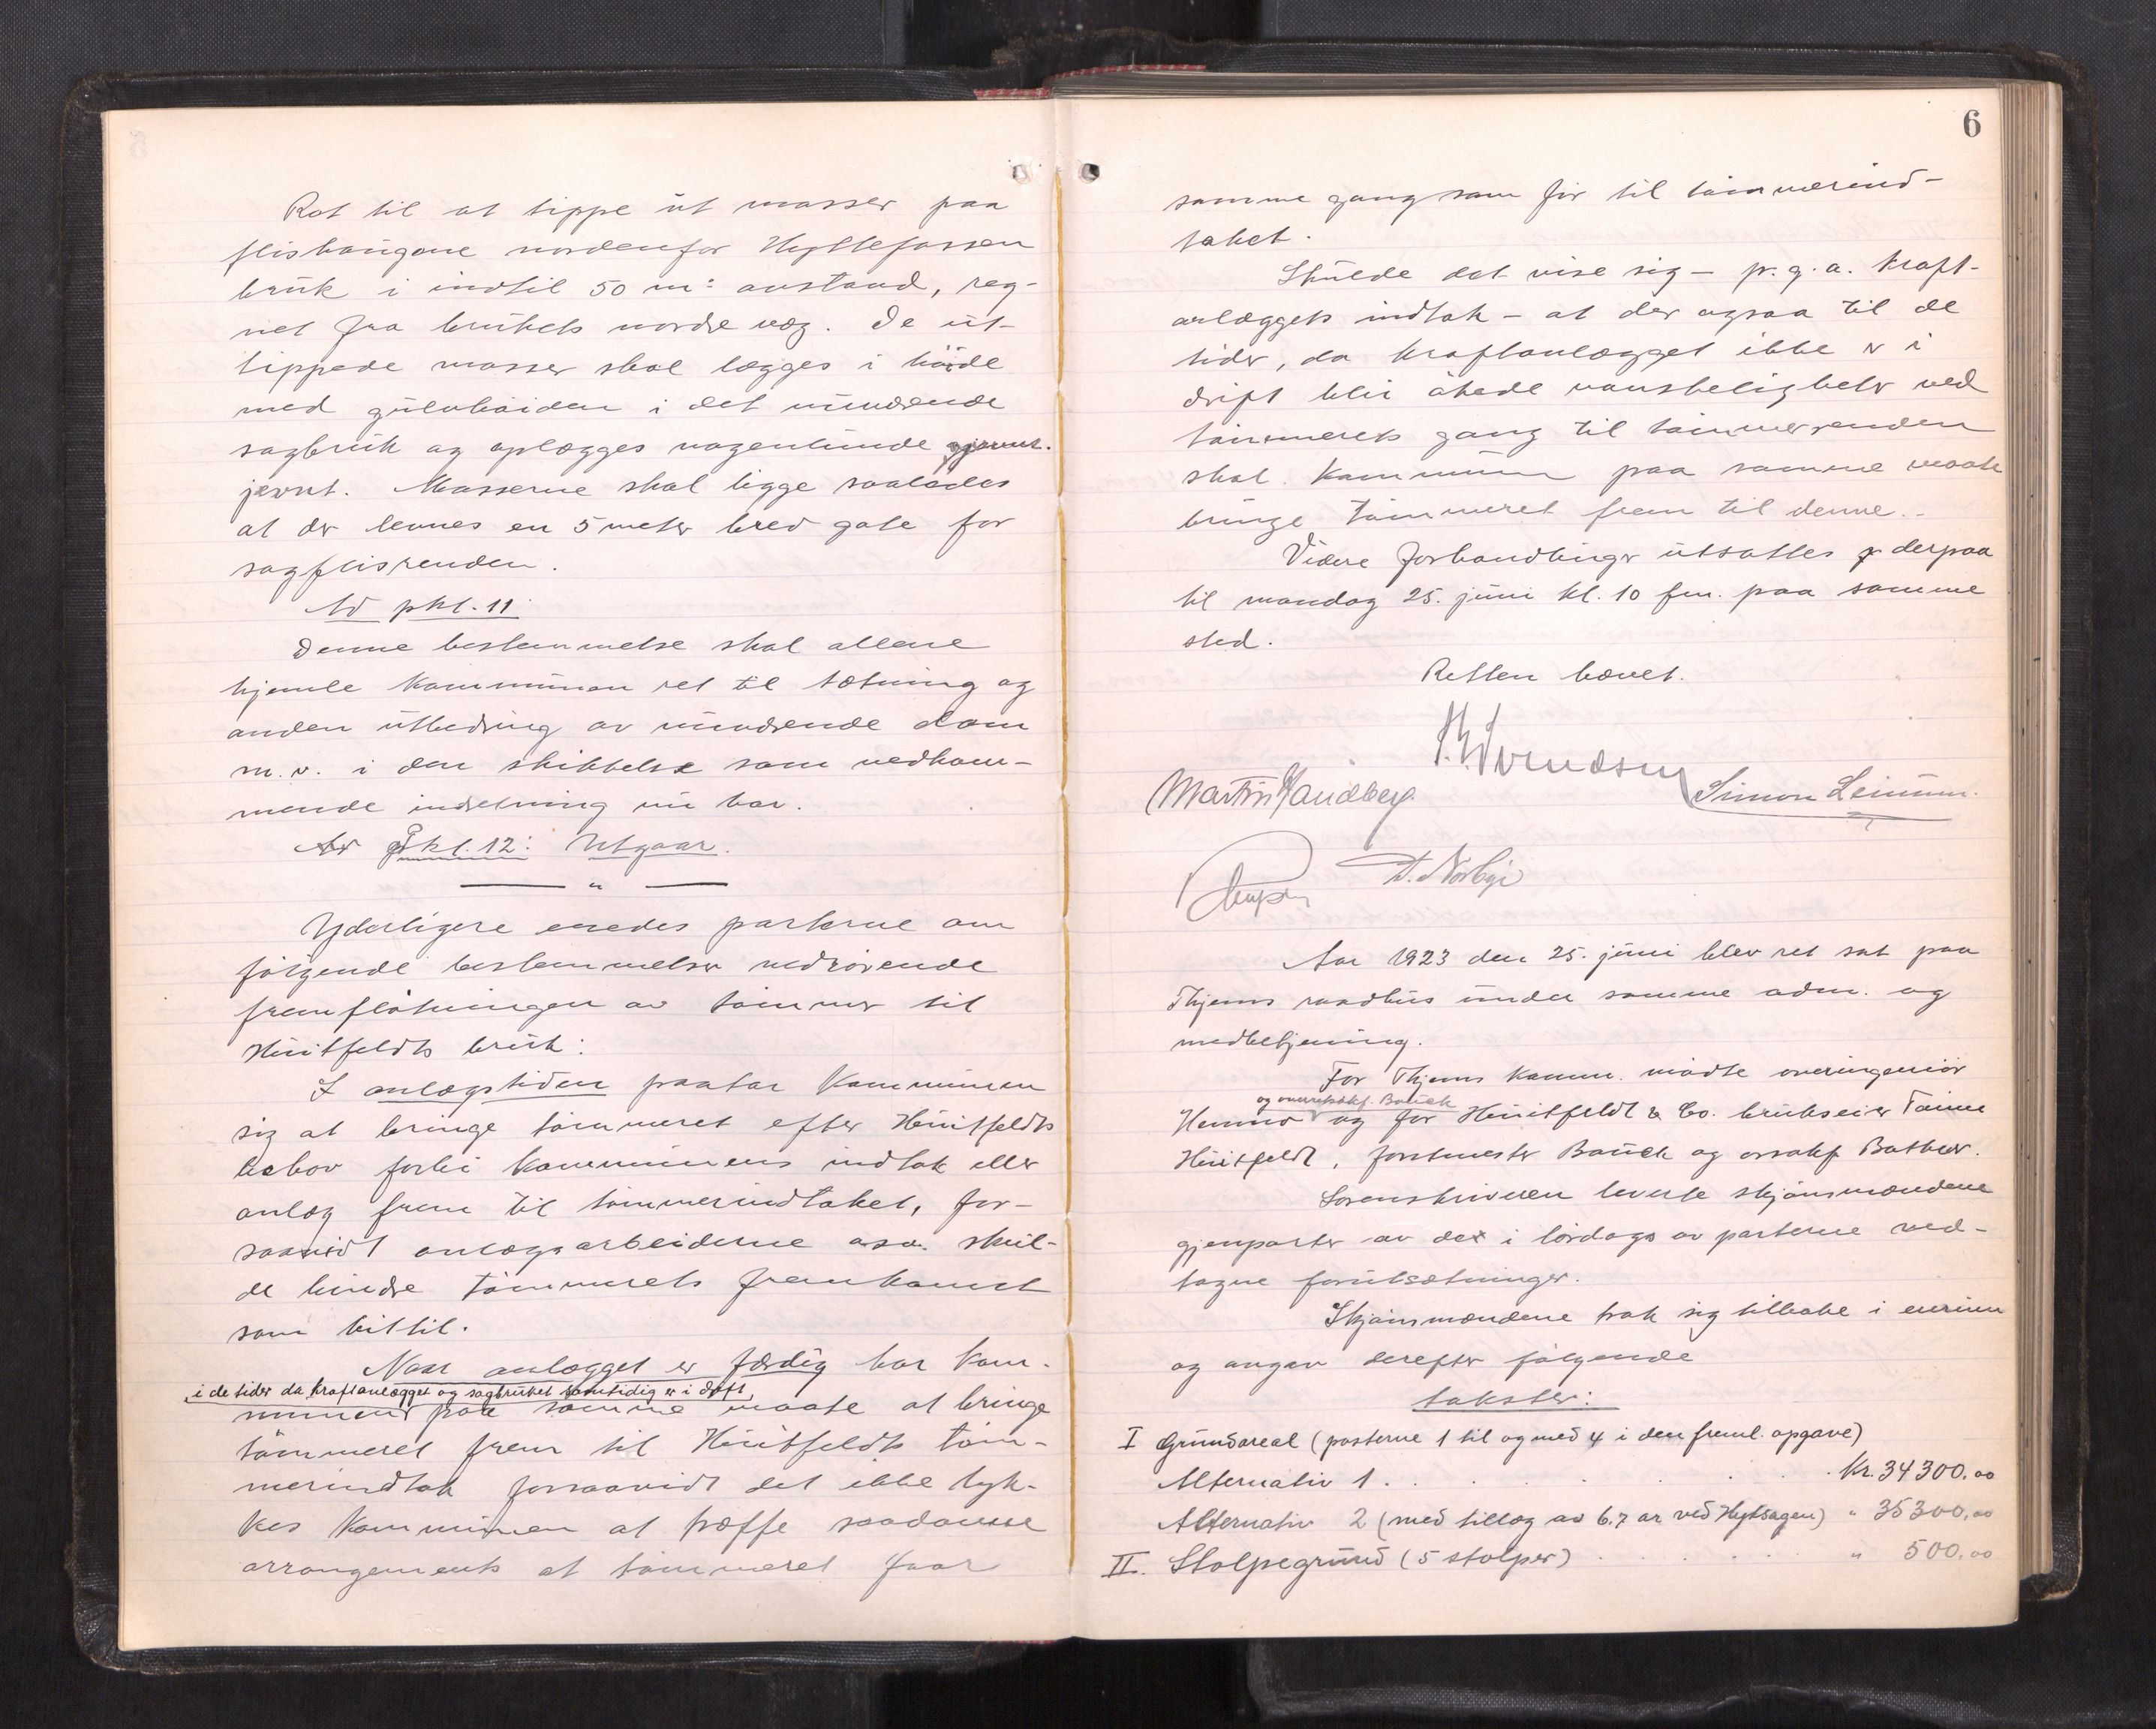 Ret til at tippe ut masser paa
flishaugene nordenfor Hyttefossen
bruk i indtil 50 m: avstand, reg-
net fra brukets nordre væg. De ut-
tippede masser skal lægges i höide
med gulvhöiden i det nuværende
sagbruk og oplægges nogenlunde
jevnt. Masserne skal ligge saaledes
at der levnes en 5 meter bred gate for
sagflisrenden.
Ad pkt. 11
Denne bestemmelse skal allene
hjemle kommunen ret til tætning og
anden utbedring av nuværende dam
m.v. i den skikkelse som vedkom-
mende indretning nu har.
Ad Pkt. 12: Utgaar.
— " —
Yderligere enedes parterne om
følgende bestemmelser vedrörende
fremflötningen av tömmer til
Huitfeldts bruk:
I anlægstiden paatar kommunen
sig at bringe tömmeret efter Huitfeldts
behov forbi kommunens indtak eller
anlæg frem til tömmerindtaket, for-
saavidt anlægsarbeiderne osv. skul-
de hindre tömmerets fremkomst
som hittil.
Naar anlægget er færdig har kom-
i de tider da kraftanlægget og sagbruket samtidig er i drift,
munen paa samme maate at bringe
tömmeret frem til Huitfeldts töm-
merindtak forsaavidt det ikke lyk-
kes kommunen at træffe saadanne
arrangements at tömmeret faar
6
samme gang som för til tömmerind-
taket.
Skulde det vise sig - p.g.a. kraft-
anlæggets indtak - at der ogsaa til de
tider, da kraftanlægget ikke er i
drift blir ökede vanskeligheter ved
tömmerets gang til tömmerrenden
skal kommunen paa samme maate
bringe tömmeret frem til denne.-
Videre forhandlinger utsattes derpaa
til mandag 25. juni kl. 10 fm. paa samme
sted.
Retten hævet.
Svendsen
Martin Sandberg. Simon Leinum.
T. Norbye
Aar 1923 den 25. juni blev ret sat paa
Thjems raadhus under samme adm. og
medbetjening.
For Thjems komm. mödte overingeniör
og overretssakf. Bauck
Hemmo og for Huitfeldt & Co. brukseier Tönne
Huitfeldt, forstmester Bauck og orsakf Bathen.
Sorenskriveren leverte skjönsmændene
gjenparter av de i lördags av parterne ved-
tagne forutsætninger.
Skjönsmændene trak sig tilbake i enrum
og avgav derefter følgende
takster:
I Grundareal (posterne 1 til og med 4 i den freml. opgave)
Alternativ 1 . . . . . . . Kr. 34300.00
Alternativ 2 (med tillæg av 6.7 ar ved Hytsagen) " 35300.00
II. Stolpegrund (5 stolper) . . . . . . " 500.00